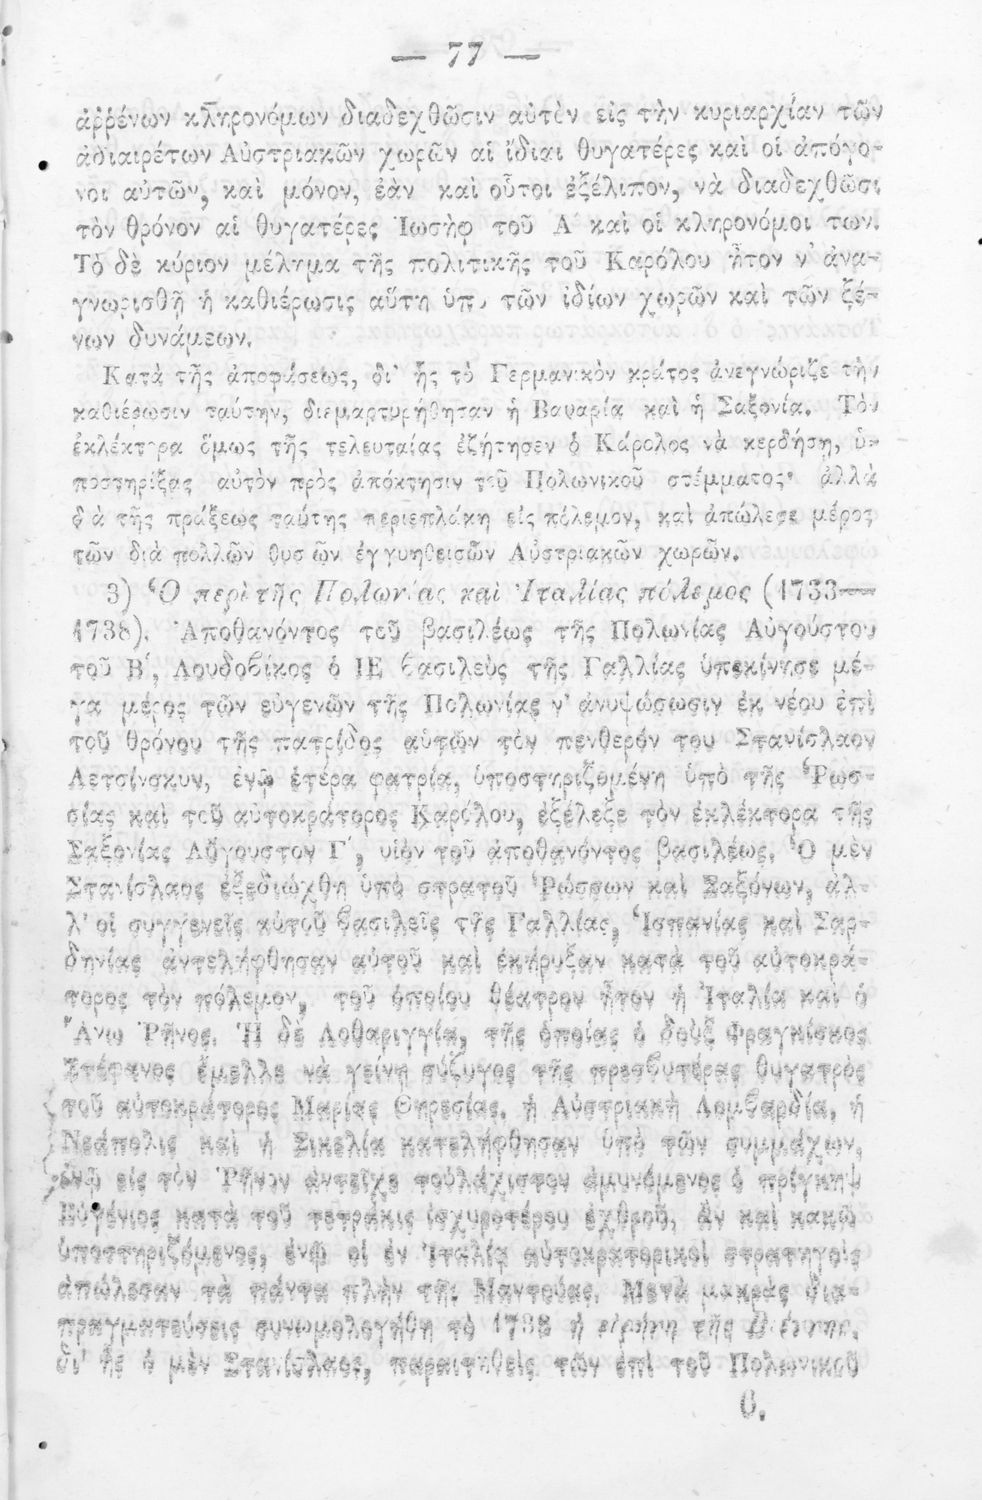 — 77 —
ἀῤῥένων κληρονόμων διαδεχθῶσιν αὐτὸν εἰς τὴν κυριαρχίαν τῶν
ἀδιαιρέτων Αὐστριακῶν χωρῶν αἱ ἴδιαι θυγατέρες καὶ οἱ ἀπόγο-
νοι αὐτῶν, καὶ μόνον, ἐὰν καὶ οὗτοι ἐξέλιπον, νὰ διαδεχθῶσι
τὸν θρόνον αἱ θυγατέρες Ἰωσὴφ τοῦ Α´ καὶ οἱ κληρονόμοι των.
Τὸ δὲ κύριον μέλημα τῆς πολιτικῆς τοῦ Καρόλου ἦτον ν' ἀνα-
γνωρισθῇ ἡ καθιέρωσις αὕτη ὑπὸ τῶν ἰδίων χωρῶν καὶ τῶν ξέ-
νων δυνάμεων.
Κατὰ τῆς ἀποφάσεως, δι' ἧς τὸ Γερμανικὸν κράτος ἀνεγνώριζε τὴν
καθιέρωσιν ταύτην, διεμαρτυρήθησαν ἡ Βαυαρία καὶ ἡ Σαξονία. Τὸν
ἐκλέκτορα ὅμως τῆς τελευταίας ἐζήτησεν ὁ Κάρολος νὰ κερδήσῃ, ὑ-
ποστηρίξας αὐτὸν πρὸς ἀπόκτησιν τοῦ Πολωνικοῦ στέμματος· ἀλλὰ
διὰ τῆς πράξεως ταύτης περιεπλάκη εἰς πόλεμον, καὶ ἀπώλεσε μέρος
τῶν διὰ πολλῶν θυσιῶν ἐγγυηθεισῶν Αὐστριακῶν χωρῶν.
3) Ὁ περὶ τῆς Πολωνίας καὶ Ἰταλίας πόλεμος (1733—
1738). Ἀποθανόντος τοῦ βασιλέως τῆς Πολωνίας Αὐγούστου
τοῦ Β´, Λουδοβίκος ὁ ΙΕ´ βασιλεὺς τῆς Γαλλίας ὑπεκίνησε μέ-
γα μέρος τῶν εὐγενῶν τῆς Πολωνίας ν' ἀνυψώσωσιν ἐκ νέου ἐπὶ
τοῦ θρόνου τῆς πατρίδος αὐτῶν τὸν πενθερόν του Στανίσλαον
Λετσίνσκυν, ἐνῷ ἑτέρα φατρία, ὑποστηριζομένη ὑπὸ τῆς Ῥωσ-
σίας καὶ τοῦ αὐτοκράτορος Καρόλου, ἐξέλεξε τὸν ἐκλέκτορα τῆς
Σαξονίας Αὔγουστον Γ´, υἱὸν τοῦ ἀποθανόντος βασιλέως. Ὁ μὲν
Στανίσλαος ἐξεδιώχθη ὑπὸ στρατοῦ Ῥώσσων καὶ Σαξόνων, ἀλ-
λ' οἱ συγγενεῖς αὐτοῦ βασιλεῖς τῆς Γαλλίας, Ἱσπανίας καὶ Σαρ-
δηνίας ἀντελήφθησαν αὐτοῦ καὶ ἐκήρυξαν κατὰ τοῦ αὐτοκρά-
τορος τὸν πόλεμον, τοῦ ὁποίου θέατρον ἦτον ἡ Ἰταλία καὶ ὁ
Ἄνω Ῥῆνος. Ἡ δὲ Λοθαριγγία, τῆς ὁποίας ὁ δοὺξ Φραγκίσκος
Στέφανος ἔμελλε νὰ γείνῃ σύζυγος τῆς πρεσβυτέρας θυγατρὸς
τοῦ αὐτοκράτορος Μαρίας Θηρεσίας, ἡ Αὐστριακὴ Λομβαρδία, ἡ
Νεάπολις καὶ ἡ Σικελία κατελήφθησαν ὑπὸ τῶν συμμάχων,
ἐνῷ εἰς τὸν Ῥῆνον ἀντεῖχε τοὐλάχιστον ἀμυνόμενος ὁ πρίγκηψ
Εὐγένιος κατὰ τοῦ τετράκις ἰσχυροτέρου ἐχθροῦ, ἂν καὶ κακῶς
ὑποστηριζόμενος, ἐνῷ οἱ ἐν Ἰταλίᾳ αὐτοκρατορικοὶ στρατηγοὶ
ἀπώλεσαν τὰ πάντα πλὴν τῆς Μαντούας. Μετὰ μακρὰς δια-
πραγματεύσεις συνωμολογήθη τὸ 1738 ἡ εἰρήνη τῆς Βιέννης,
δι' ἧς ὁ μὲν Στανίσλαος, παραιτηθεὶς τῶν ἐπὶ τοῦ Πολωνικοῦ
6.